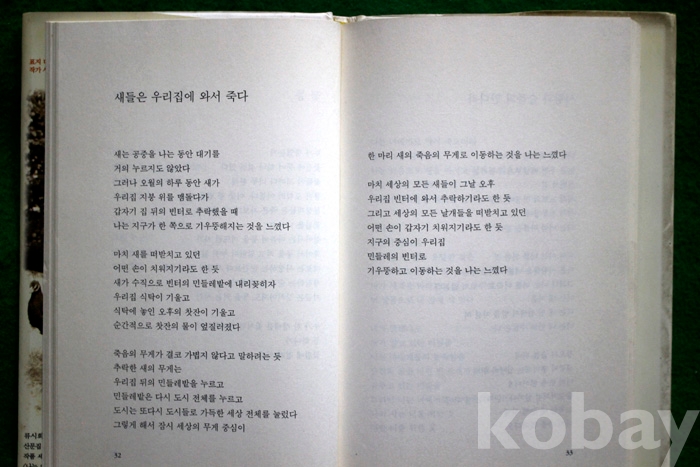 표지
작가
새들은 우리집에 와서 죽다
새는 공중을 나는 동안 대기를
거의 누르지도 않았다
그러나 오월의 하루 동안 새가
우리집 지붕 위를 맴돌다가
갑자기 집 뒤의 빈터로 추락했을 때
나는 지구가 한 쪽으로 기우뚱해지는 것을 느꼈다
마치 새를 떠받치고 있던
어떤 손이 치워지기라도 한 듯
새가 수직으로 빈터의 민들레밭에 내리꽂히자
우리집 식탁이 기울고
식탁에 놓인 오후의 찻잔이 기울고
순간적으로 찻잔의 물이 엎질러졌다
죽음의 무게가 결코 가볍지 않다고 말하려는 듯
추락한 새의 무게는
우리집 뒤의 민들레밭을 누르고
민들레밭은 다시 도시 전체를 누르고
도시는 또다시 도시들로 가득한 세상 전체를 눌렀다
그렇게 해서 잠시 세상의 무게 중심이
32
한 마리 새의 죽음의 무게로 이동하는 것을 나는 느꼈다
마치 세상의 모든 새들이 그날 오후
우리집 빈터에 와서 추락하기라도 한 듯
그리고 세상의 모든 날개들을 떠받치고 있던
어떤 손이 갑자기 치워지기라도 한 듯
지구의 중심이 우리집
민들레의 빈터로
기우뚱하고 이동하는 것을 나는 느꼈다
33
류시화
산문집
작품
kobay